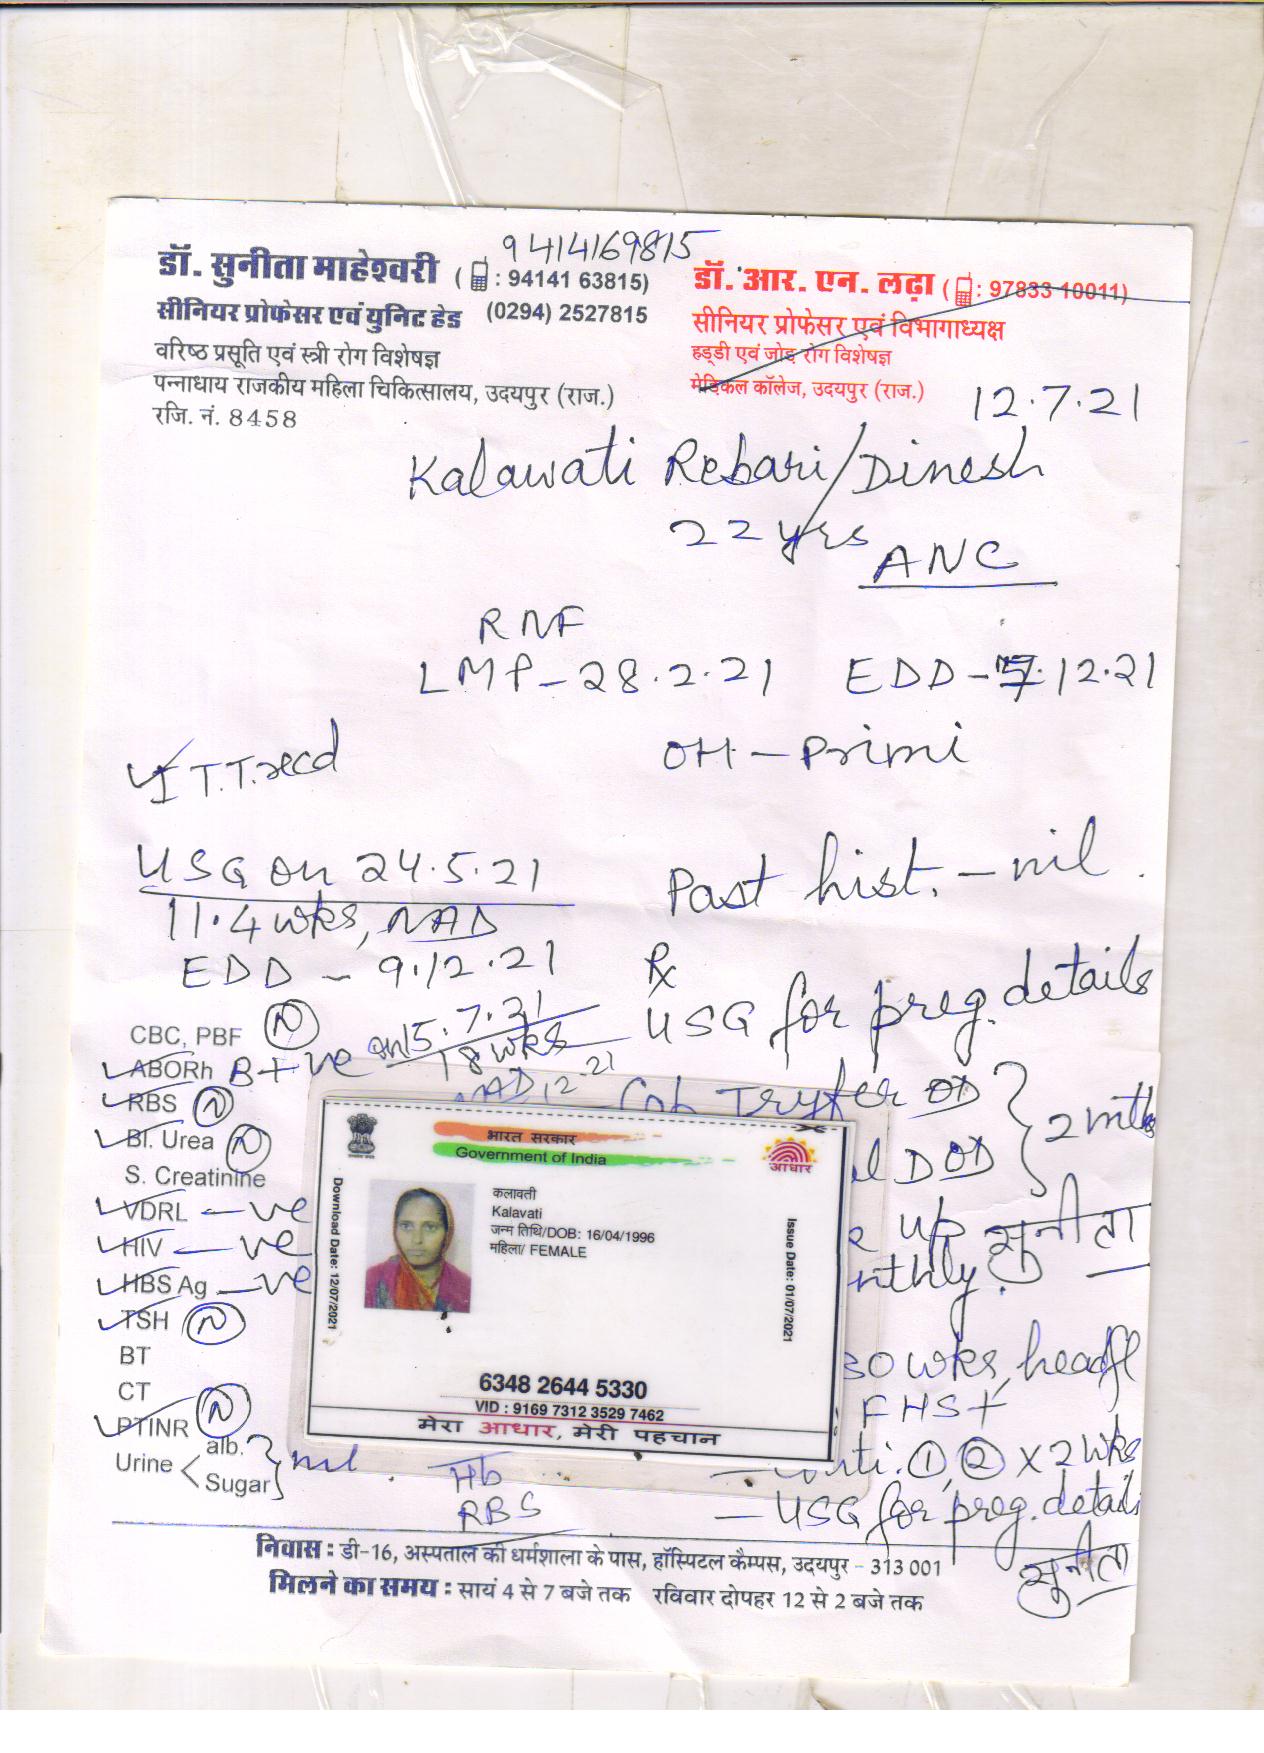 9414169815
डॉ. सुनीता माहेश्वरी ( : 94141 63815)
सीनियर प्रोफेसर एवं युनिट हेड (0294) 2527815
वरिष्ठ प्रसूति एवं स्त्री रोग विशेषज्ञ
पन्नाधाय राजकीय महिला चिकित्सालय, उदयपुर (राज.)
रजि. नं. 8458
डॉ. आर. एन. लढ़ा ( : 97833 10011)
सीनियर प्रोफेसर एवं विभागाध्यक्ष
हड्डी एवं जोड़ रोग विशेषज्ञ
मेडिकल कॉलेज, उदयपुर (राज.)
12.7.21
Kalawati Rebari/Dinesh
22 yrs
ANC
RNF
LMP - 28.2.21 EDD - 7.12.21
I T.T. recd
OH - Primi
USG on 24.5.21
11.4 wks, NAD
EDD - 9.12.21
Past hist. - nil.
Rx
USG for preg. details
on 15.7.21
18 wks
NAD 12 21
CBC, PBF N
ABORh B+ve
RBS N
Bl. Urea N
S. Creatinine
VDRL -ve
HIV -ve
HBS Ag -ve
TSH N
BT
CT
PTINR N
Urine alb. Sugar nil
OD
D OD
2 mths
up
nthly.
सुनीता
भारत सरकार
Government of India
आधार
Download Date: 12/07/2021
कलावती
Kalavati
जन्म तिथि/DOB: 16/04/1996
महिला/ FEMALE
Issue Date: 01/07/2021
6348 2644 5330
VID : 9169 7312 3529 7462
मेरा आधार, मेरी पहचान
30 wks, headfl
FHS+
1, 2 x 2 wks
- USG for preg. details
सुनीता
Hb
RBS
निवास : डी-16, अस्पताल की धर्मशाला के पास, हॉस्पिटल कैम्पस, उदयपुर - 313 001
मिलने का समय : सायं 4 से 7 बजे तक रविवार दोपहर 12 से 2 बजे तक